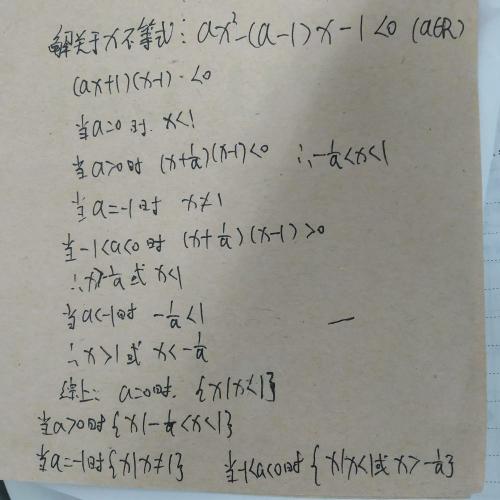 解关于x不等式：ax²-(a-1)x-1<0 (a∈R)
(ax+1)(x-1)<0
当a=0时 x<1
当a>0时 (x+1/a)(x-1)<0 ∴-1/a<x<1
当a=-1时 x≠1
当-1<a<0时 (x+1/a)(x-1)>0
∴x>-1/a或x<1
当a<-1时 -1/a<1
∴x>1或x<-1/a
综上：a=0时，{x|x<1}
当a>0时{x|-1/a<x<1}
当a=-1时{x|x≠1} 当-1<a<0时{x|x<1或x>-1/a}